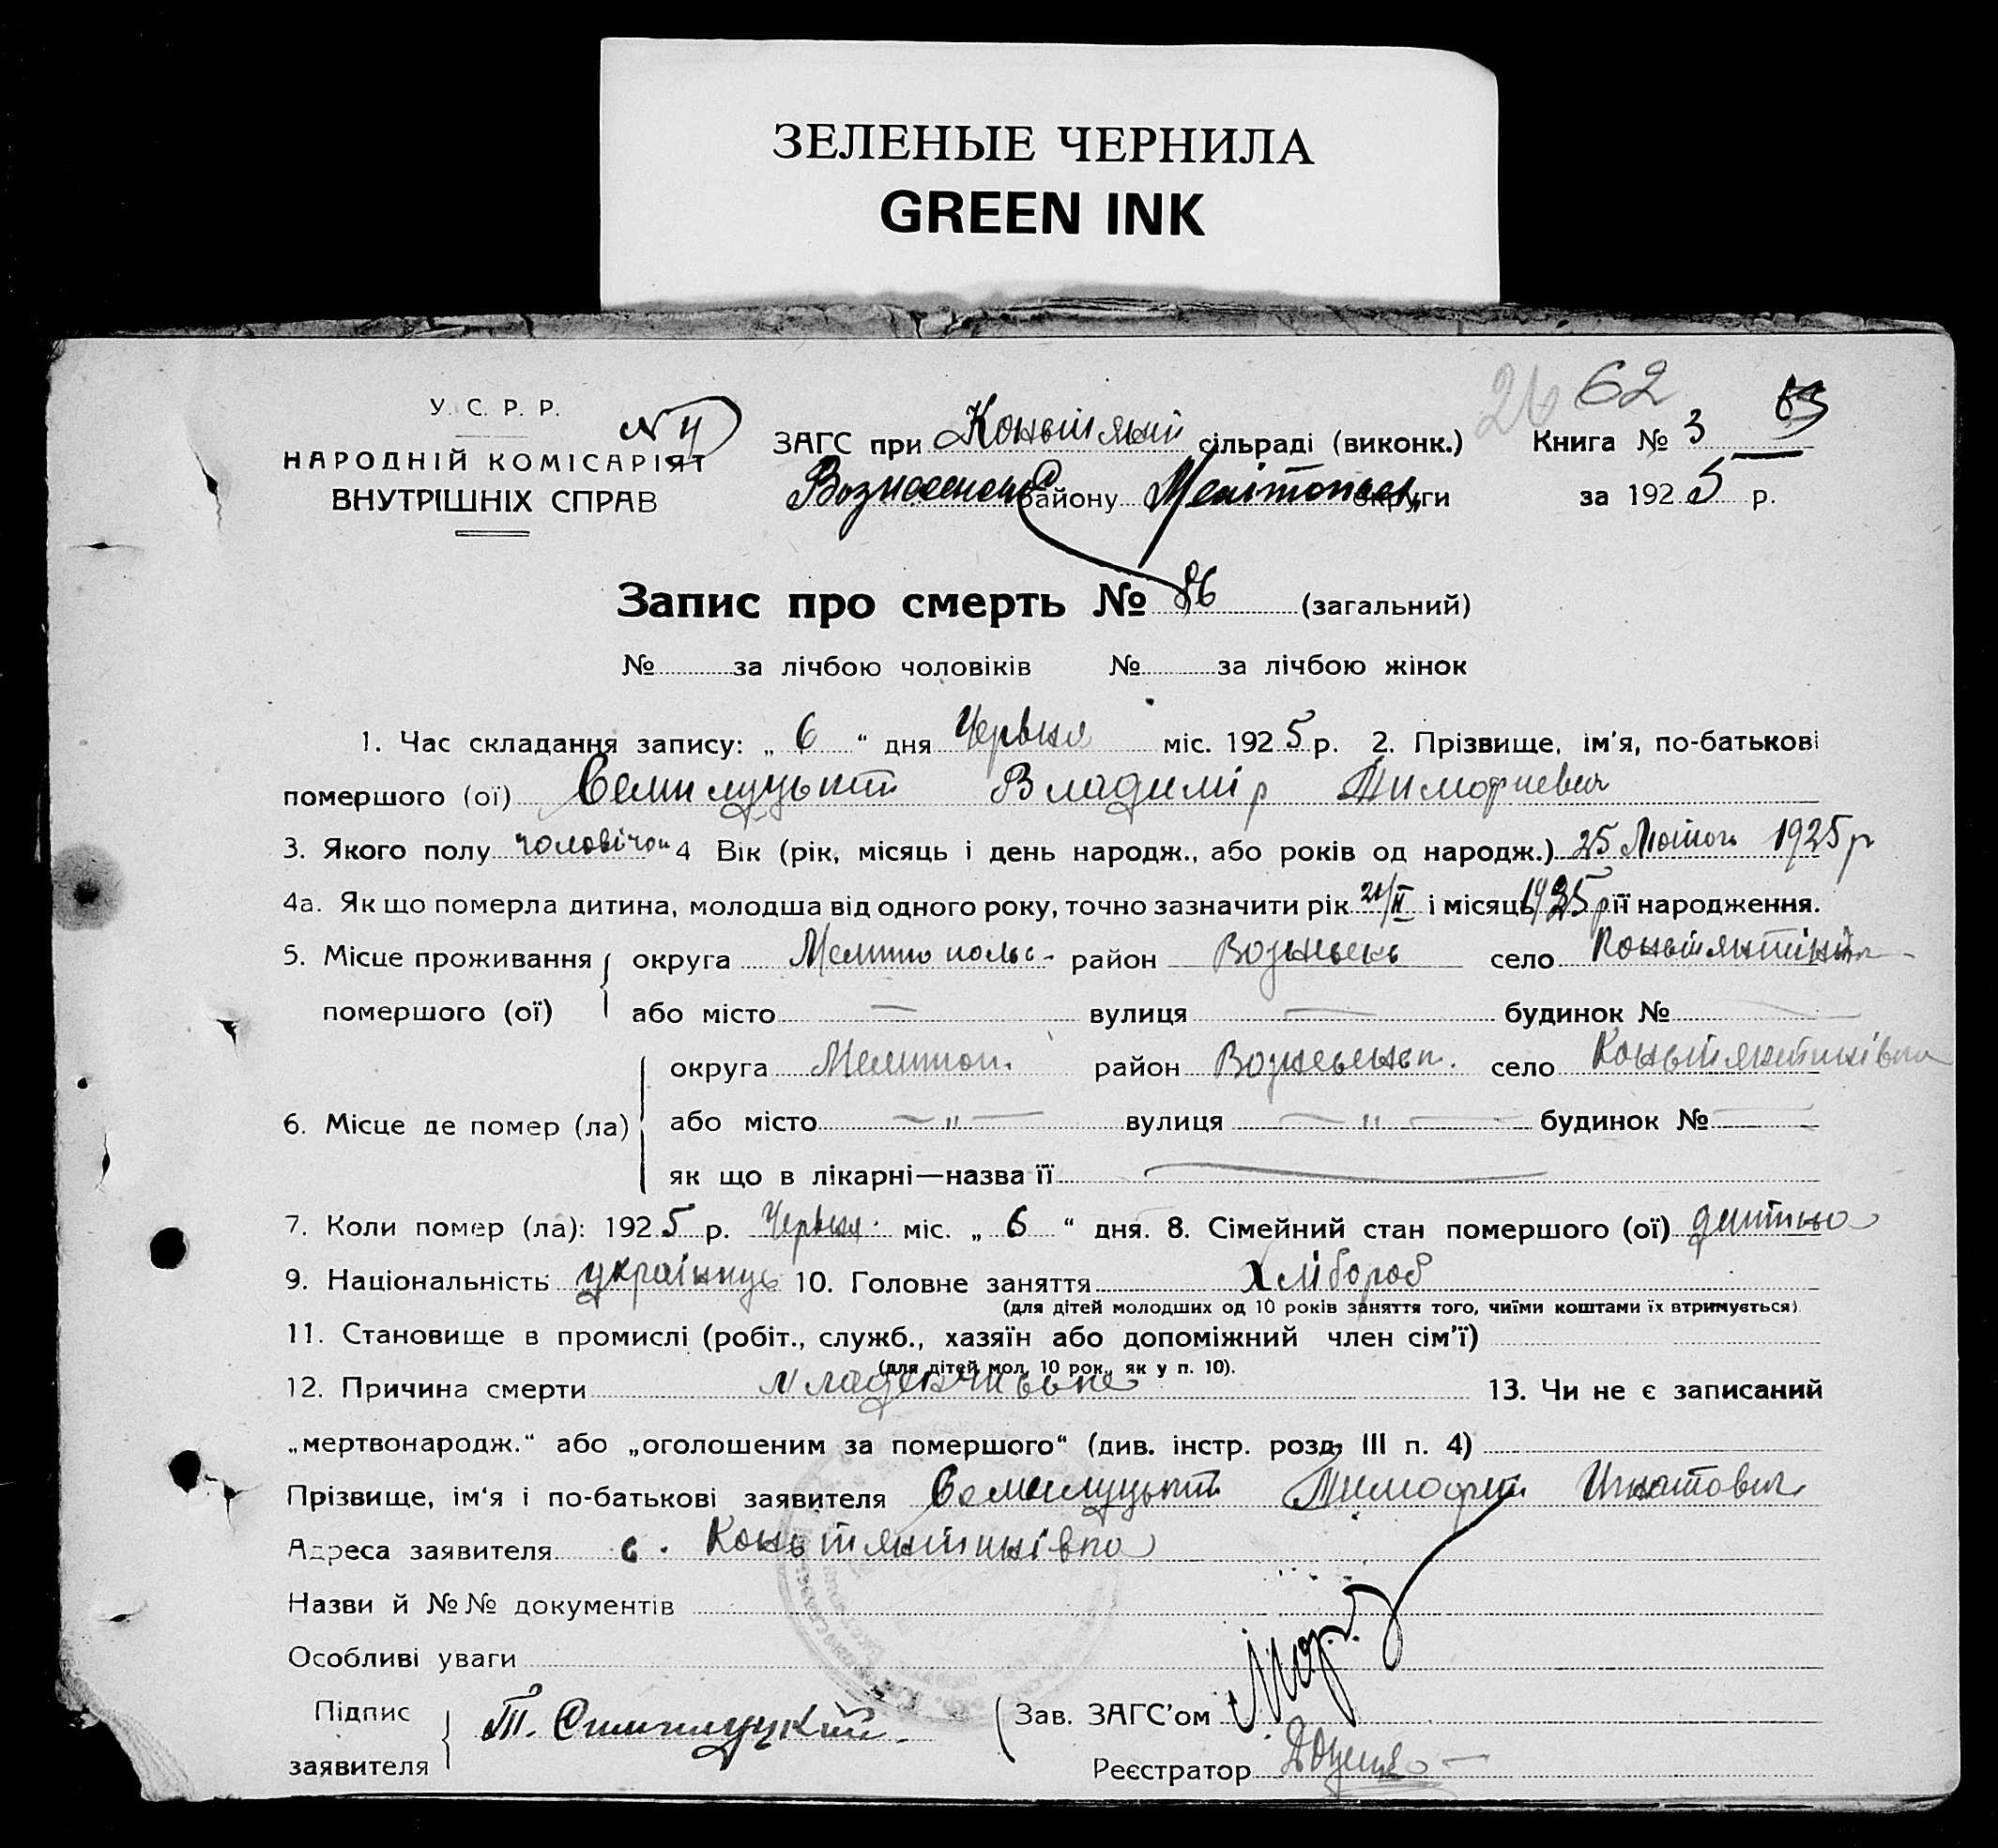 ЗЕЛЕНЫЕ ЧЕРНИЛА
GREEN INK
26 62
У. С. Р. Р.
НАРОДНІЙ КОМІСАРІЯТ
ВНУТРІШНІХ СПРАВ
ЗАГС при сільраді (виконк.) Книга № 3
району округи за 1925 р.
Запис про смерть № 86 (загальний)
№ за лічбою чоловіків № за лічбою жінок
1. Час складання запису: „ 6 “ дня Червня міс. 1925 р. 2. Прізвище, ім'я, по-батькові
помершого (ої) Семилуцький Владимір Тимофиевич
3. Якого полу чоловічої 4 Вік (рік, місяць і день народж., або років од народж.) 25 Лютого 1925 р
4а. Як що померла дитина, молодша від одного року, точно зазначити рік і місяць 1925 р її народження.
5. Місце проживання округа район село
помершого (ої) або місто — вулиця — будинок № —
округа Мелитоп. район село Коньстянтинівка
6. Місце де помер (ла) або місто — " — вулиця — " — будинок № —
як що в лікарні—назва її
7. Коли помер (ла): 1925 р. Червня міс. „ 6 “ дня. 8. Сімейний стан помершого (ої) дитина
9. Національність українець 10. Головне заняття Хлібороб
(для дітей молодших од 10 років заняття того, чиїми коштами їх втримується)
11. Становище в промислі (робіт., служб., хазяїн або допоміжний член сім'ї)
(для дітей мол. 10 рок., як у п. 10).
12. Причина смерти 13. Чи не є записаний
„мертвонародж.“ або „оголошеним за помершого“ (див. інстр. розд. III п. 4)
Прізвище, ім'я і по-батькові заявителя Семилуцький Тимофій Игнатович
Адреса заявителя с. Коньстянтинівка
Назви й №№ документів
Особливі уваги
Підпис
заявителя Т. Семилуцкий
Зав. ЗАГС'ом
Реєстратор